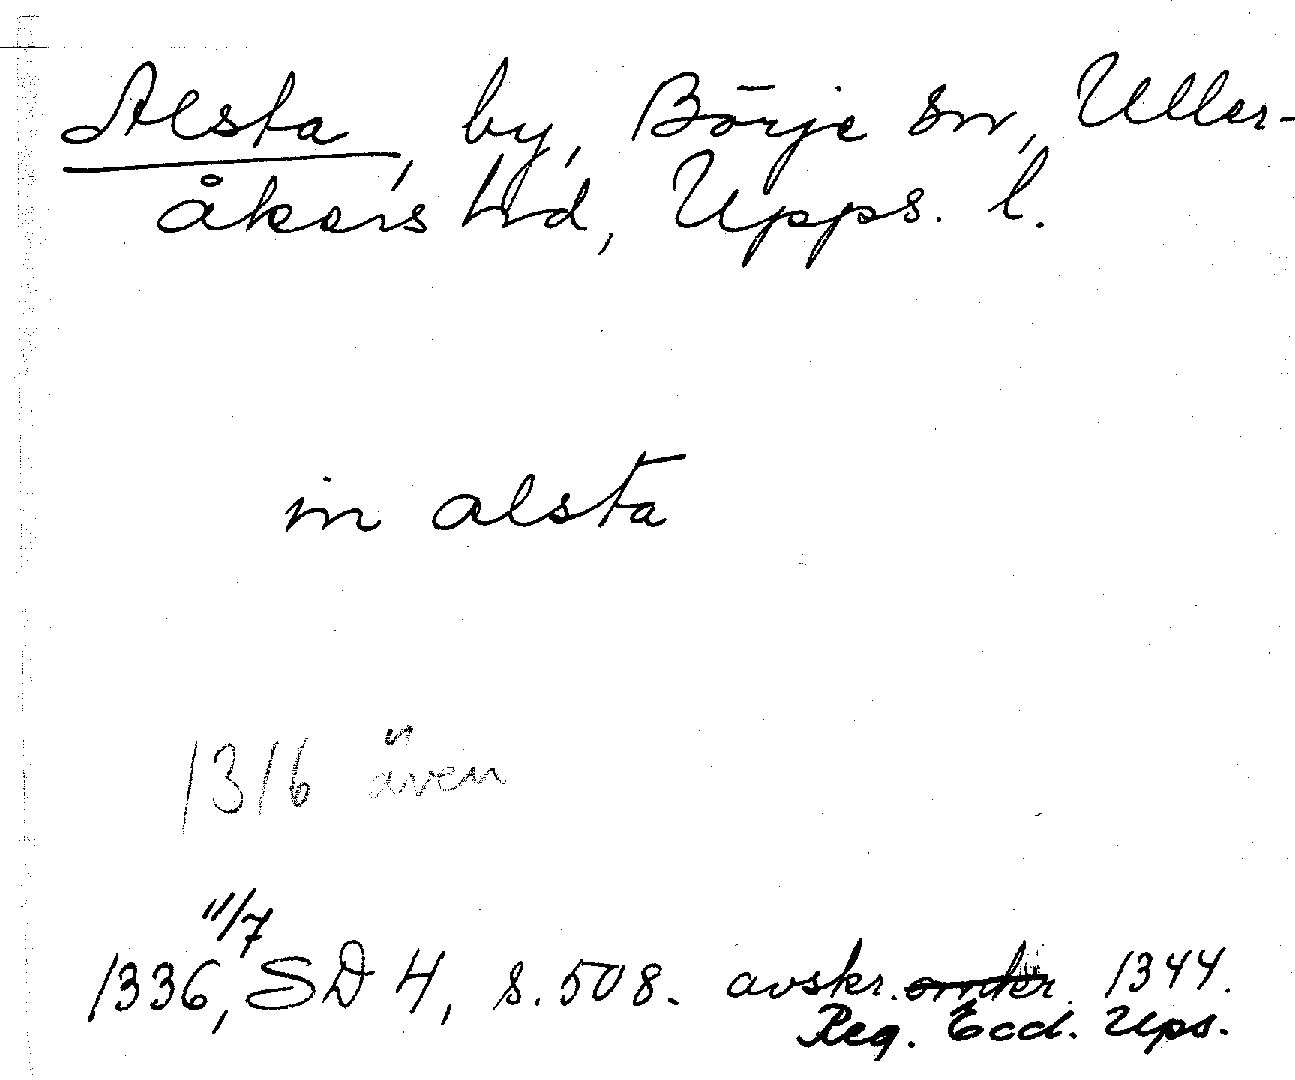 Alsta, by, Börje sn, Uller-
åkers hrd, Upps. l.
in alsta
1316 även
1336, 11/7 SD 4, s. 508. avskr. 1344.
Reg. Eccl. Ups.